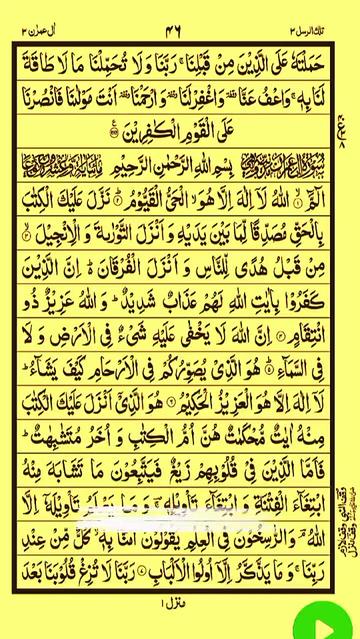 تلك الرسل ٣ ٤٦ اٰل عمرٰن ٣
حَمَلْتَهٗ عَلَى الَّذِيْنَ مِنْ قَبْلِنَا ۚ رَبَّنَا وَ لَا تُحَمِّلْنَا مَا لَا طَاقَةَ
لَنَا بِهٖ ۚ وَ اعْفُ عَنَّا ٙ وَ اغْفِرْ لَنَا ٙ وَ ارْحَمْنَا ٙ اَنْتَ مَوْلٰىنَا فَانْصُرْنَا
عَلَى الْقَوْمِ الْكٰفِرِيْنَ
بِسْمِ اللهِ الرَّحْمٰنِ الرَّحِيْمِ
الٓمَّٓ ۙ﴿۱﴾ اللهُ لَاۤ اِلٰهَ اِلَّا هُوَ ۙ الْحَىُّ الْقَيُّوْمُ ﴿۲﴾ نَزَّلَ عَلَيْكَ الْكِتٰبَ
بِالْحَقِّ مُصَدِّقًا لِّمَا بَيْنَ يَدَيْهِ وَ اَنْزَلَ التَّوْرٰىةَ وَ الْاِنْجِيْلَ ﴿۳﴾
مِنْ قَبْلُ هُدًى لِّلنَّاسِ وَ اَنْزَلَ الْفُرْقَانَ ؕ اِنَّ الَّذِيْنَ
كَفَرُوْا بِاٰيٰتِ اللهِ لَهُمْ عَذَابٌ شَدِيْدٌ ؕ وَ اللهُ عَزِيْزٌ ذُو
انْتِقَامٍ ﴿۴﴾ اِنَّ اللهَ لَا يَخْفٰى عَلَيْهِ شَىْءٌ فِى الْاَرْضِ وَ لَا
فِى السَّمَآءِ ﴿۵﴾ هُوَ الَّذِىْ يُصَوِّرُكُمْ فِى الْاَرْحَامِ كَيْفَ يَشَآءُ ؕ
لَاۤ اِلٰهَ اِلَّا هُوَ الْعَزِيْزُ الْحَكِيْمُ ﴿۶﴾ هُوَ الَّذِىْۤ اَنْزَلَ عَلَيْكَ الْكِتٰبَ
مِنْهُ اٰيٰتٌ مُّحْكَمٰتٌ هُنَّ اُمُّ الْكِتٰبِ وَ اُخَرُ مُتَشٰبِهٰتٌ ؕ
فَاَمَّا الَّذِيْنَ فِىْ قُلُوْبِهِمْ زَيْغٌ فَيَتَّبِعُوْنَ مَا تَشَابَهَ مِنْهُ
ابْتِغَآءَ الْفِتْنَةِ وَ ابْتِغَآءَ تَاْوِيْلِهٖ ۚ وَ مَا يَعْلَمُ تَاْوِيْلَهٗۤ اِلَّا
اللهُ ۘ وَ الرّٰسِخُوْنَ فِى الْعِلْمِ يَقُوْلُوْنَ اٰمَنَّا بِهٖ ۙ كُلٌّ مِّنْ عِنْدِ
رَبِّنَا ۚ وَ مَا يَذَّكَّرُ اِلَّاۤ اُولُوا الْاَلْبَابِ ﴿۷﴾ رَبَّنَا لَا تُزِغْ قُلُوْبَنَا بَعْدَ
منزل ١